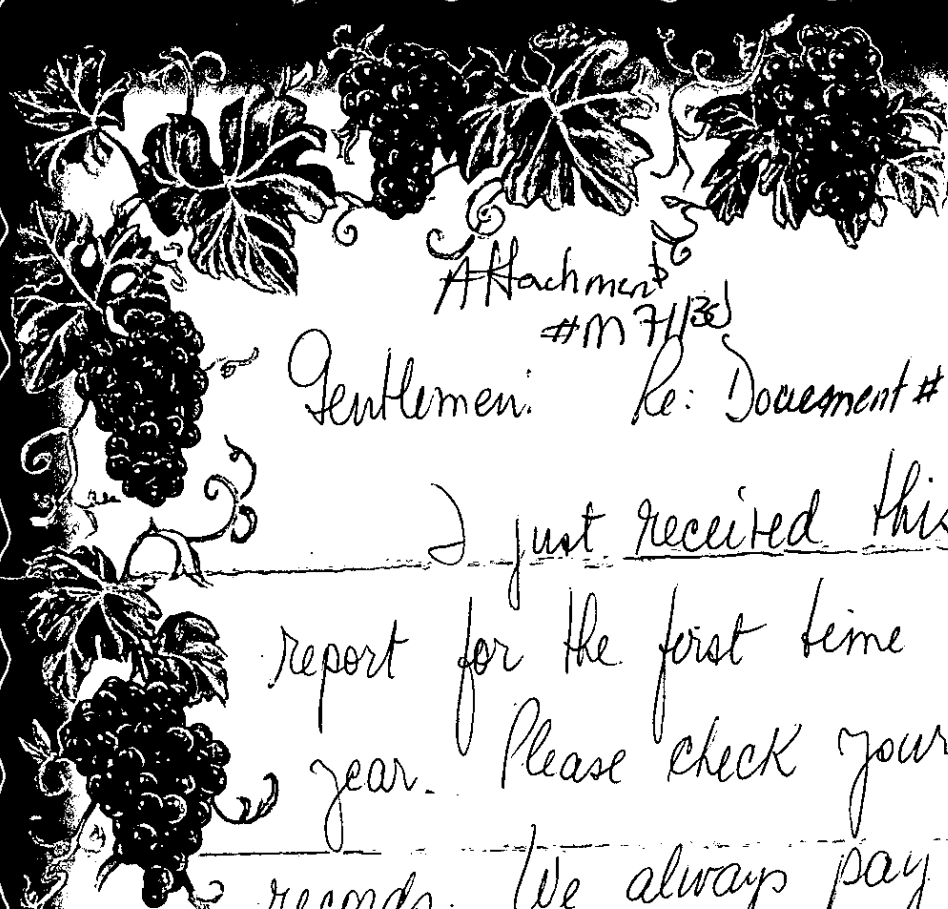 Attachment
#M71130
Gentlemen: Re: Document #
I just received this
report for the first time
year. Please check your
records. We always pay